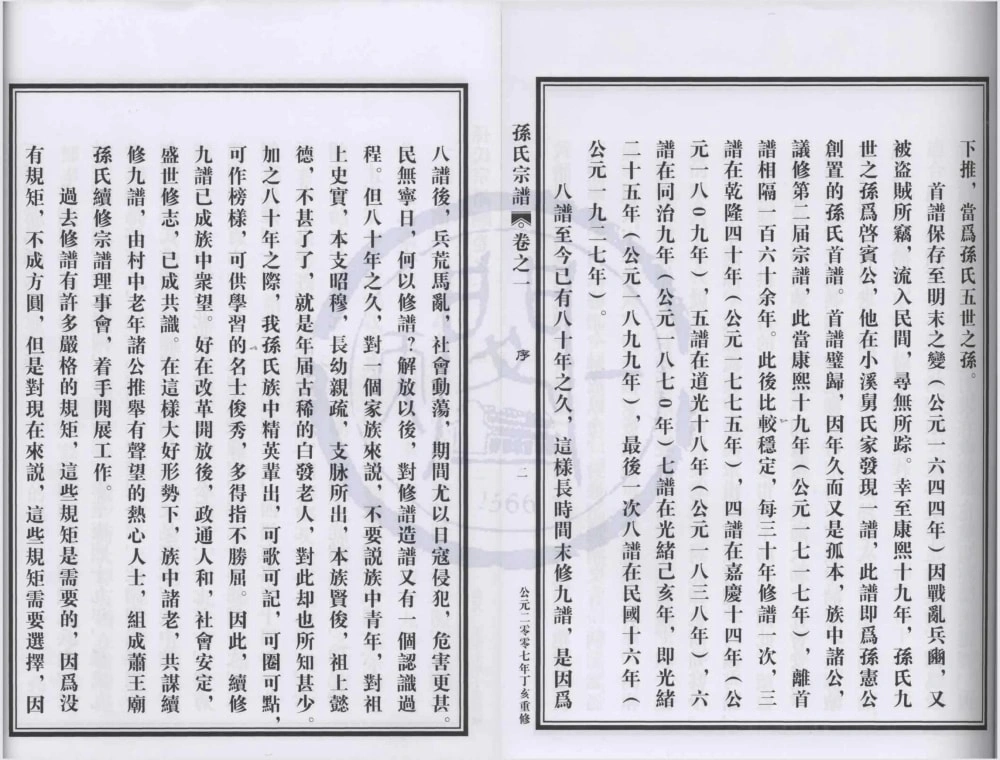 下推，當爲孫氏五世之孫。
首譜保存至明末之變（公元一六四四年）因戰亂兵豳，又
被盜賊所竊，流入民間，尋無所踪。幸至康熙十九年，孫氏九
世之孫爲啓賓公，他在小溪舅氏家發現一譜，此譜即爲孫憲公
創置的孫氏首譜。首譜璧歸，因年久而又是孤本，族中諸公，
議修第二届宗譜，此當康熙十九年（公元一七一七年），離首
譜相隔一百六十余年。此後比較穩定，每三十年修譜一次，三
譜在乾隆四十年（公元一七七五年），四譜在嘉慶十四年（公
元一八０九年），五譜在道光十八年（公元一八三八年），六
譜在同治九年（公元一八七０年）七譜在光緒己亥年，即光緒
二十五年（公元一八九九年），最後一次八譜在民國十六年（
公元一九二七年）。
八譜至今已有八十年之久，這樣長時間末修九譜，是因爲
孫氏宗譜 卷之一 序 二 公元二零零七年丁亥重修
八譜後，兵荒馬亂，社會動蕩，期間尤以日寇侵犯，危害更甚。
民無寧日，何以修譜？解放以後，對修譜造譜又有一個認識過
程。但八十年之久，對一個家族來説，不要説族中青年，對祖
上史實，本支昭穆，長幼親疏，支脉所出，本族賢俊，祖上懿
德，不甚了了，就是年届古稀的白發老人，對此却也所知甚少。
加之八十年之際，我孫氏族中精英輩出，可歌可記，可圈可點，
可作榜樣，可供學習的名士俊秀，多得指不勝屈。因此，續修
九譜已成族中衆望。好在改革開放後，政通人和，社會安定，
盛世修志，已成共識。在這樣大好形勢下，族中諸老，共謀續
修九譜，由村中老年諸公推舉有聲望的熱心人士，組成蕭王廟
孫氏續修宗譜理事會，着手開展工作。
過去修譜有許多嚴格的規矩，這些規矩是需要的，因爲没
有規矩，不成方圓，但是對現在來説，這些規矩需要選擇，因
1566